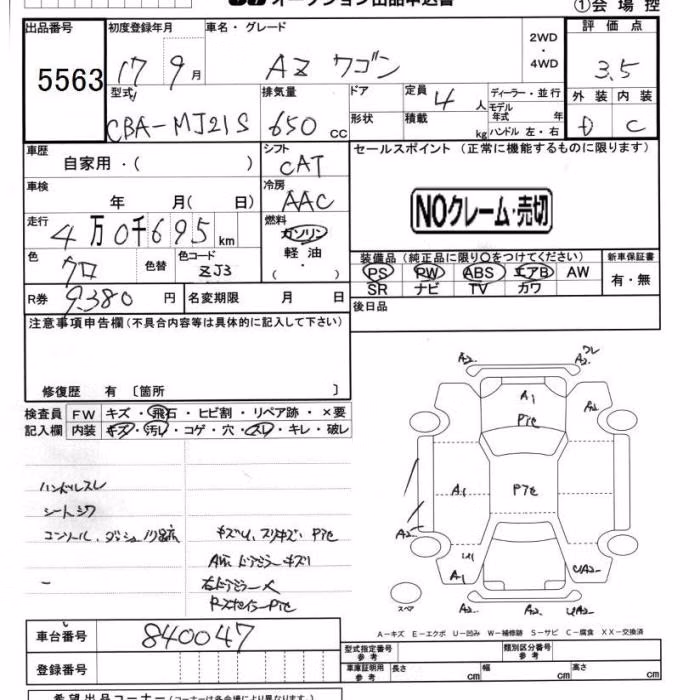 オークション出品申込書
①会場控
出品番号 5563
初度登録年月 17 9月
車名・グレード AZ ワゴン
2WD・4WD
評価点 3.5
型式 CBA-MJ21S
排気量 650 cc
ドア
形状
定員 4 人
積載 kg
ディーラー・並行
モデル年式 年
ハンドル 左・右
外装 D
内装 C
車歴 自家用・( )
シフト CAT
セールスポイント (正常に機能するものに限ります)
車検 年 月( 日)
冷房 AAC
NOクレーム・売切
走行 4万0千695km
燃料 ガソリン 軽油 ( ・ )
色 クロ 色替
色コード ZJ3
装備品 (純正品に限り○をつけてください)
新車保証書
PS PW ABS エアB AW
SR ナビ TV カワ
有・無
R券 9380 円
名変期限 月 日
後日品
注意事項申告欄(不具合内容等は具体的に記入して下さい)
修復歴 有 〔箇所 〕
検査員記入欄
FW キズ・飛石・ヒビ割・リペア跡・×要
内装 キズ・汚レ・コゲ・穴・スレ・キレ・破レ
ハンドルスレ
シートシワ
A2 A2
A1 Pﾅｾ A2
A1 Pﾅｾ
A2
A1 UA2
A2 A2 UA2
スペア
A－キズ E－エクボ U－凹み W－補修跡 S－サビ C－腐食 XX－交換済
車台番号 840047
登録番号
型式指定番号 参考
類別区分番号 参考
車庫証明用 参考 長さ cm 幅 cm 高さ cm
希望出品コーナー (コーナーは各会場により異なります。)